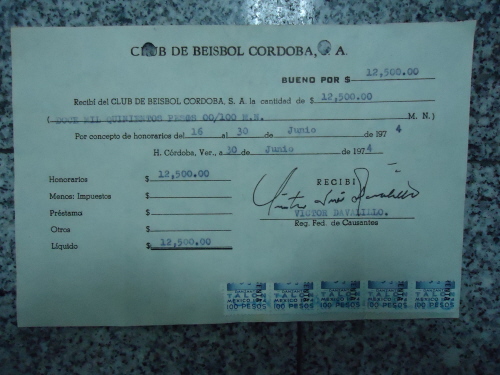 CLUB DE BEISBOL CORDOBA, S. A.
BUENO POR $ 12,500.00
Recibí del CLUB DE BEISBOL CORDOBA, S. A. la cantidad de $ 12,500.00
( DOCE MIL QUINIENTOS PESOS 00/100 M.N. M. N.)
Por concepto de honorarios del 16 al 30 de Junio de 1974
H. Córdoba, Ver., a 30 de Junio de 1974
Honorarios $ 12,500.00
Menos: Impuestos $
Préstamo $
Otros $
Líquido $ 12,500.00
RECIBI
VICTOR DAVALILLO.
Reg. Fed. de Causantes
TALON TALON TALON TALON TALON
MEXICO MEXICO MEXICO MEXICO MEXICO
100 PESOS 100 PESOS 100 PESOS 100 PESOS 100 PESOS